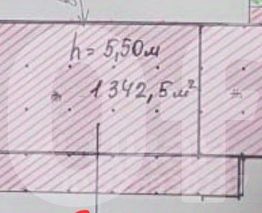 h = 5,50м
1342,5 м²